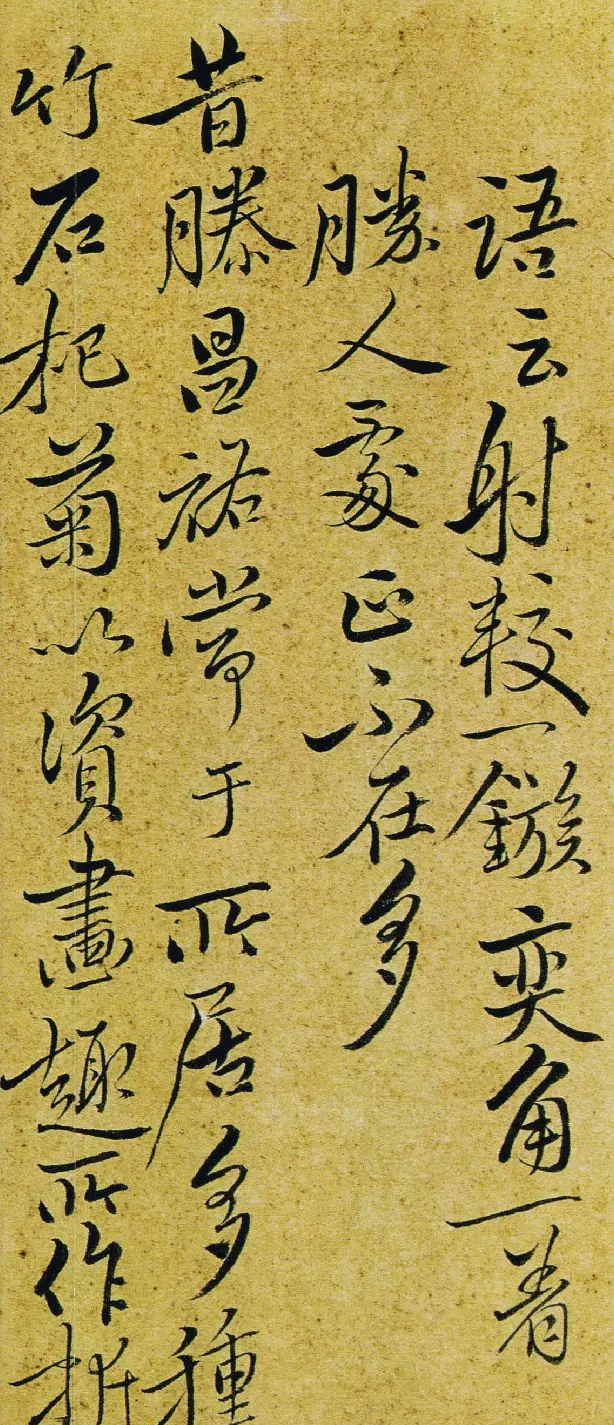 語云射較一鏃奕角一着
勝人處正不在多
昔滕昌祐常于所居多種
竹石杞菊以資畫趣所作折